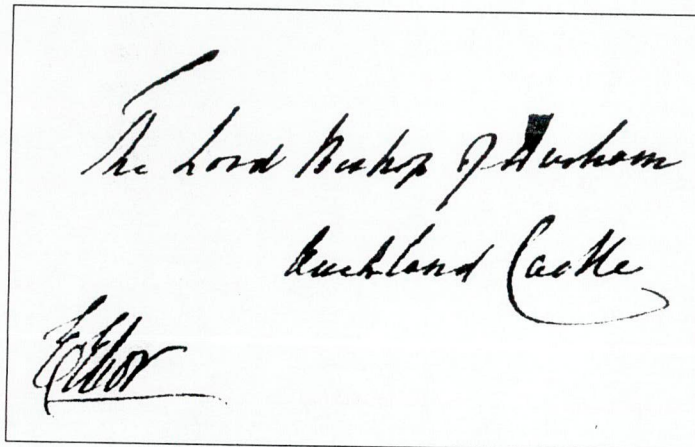 The Lord Bishop of Durham
Auckland Castle
E Ebor